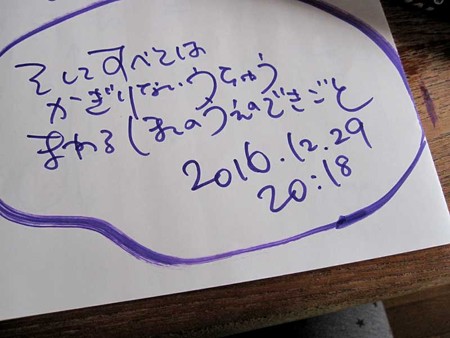 そしてすべては
かぎりないうちゅう
まわるほしのうえのできごと
2016.12.29
20:18